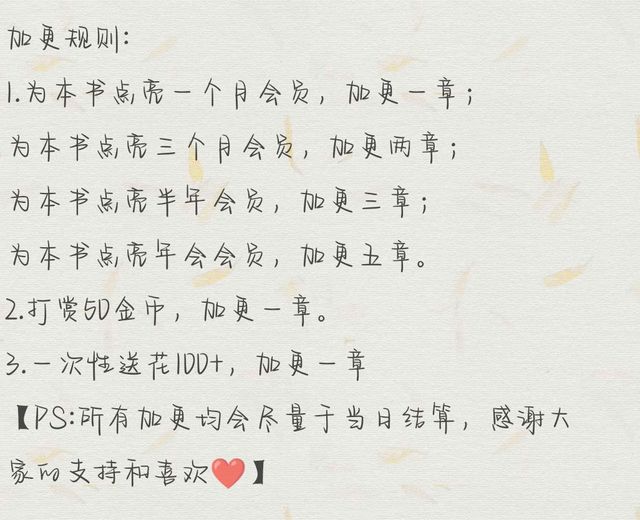 加更规则:
1.为本书点亮一个月会员，加更一章；
为本书点亮三个月会员，加更两章；
为本书点亮半年会员，加更三章；
为本书点亮年会会员，加更五章。
2.打赏50金币，加更一章。
3.一次性送花100+，加更一章
【PS:所有加更均会尽量于当日结算，感谢大
家的支持和喜欢❤️】